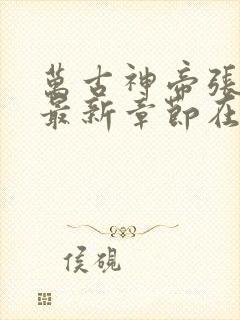 萬古神帝張
最新章節在
侯硯